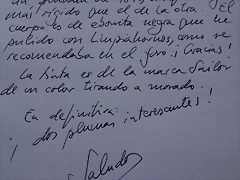 más rígido que el de la otra. ¡El
cuerpo es de ebonita negra que he
pulido con Limpiahornos, como se
recomendaba en el foro. ¡Gracias!
La tinta es de la marca Sailor
de un color tirando a morado.
En definitiva:
¡dos plumas interesantes!
Saludos